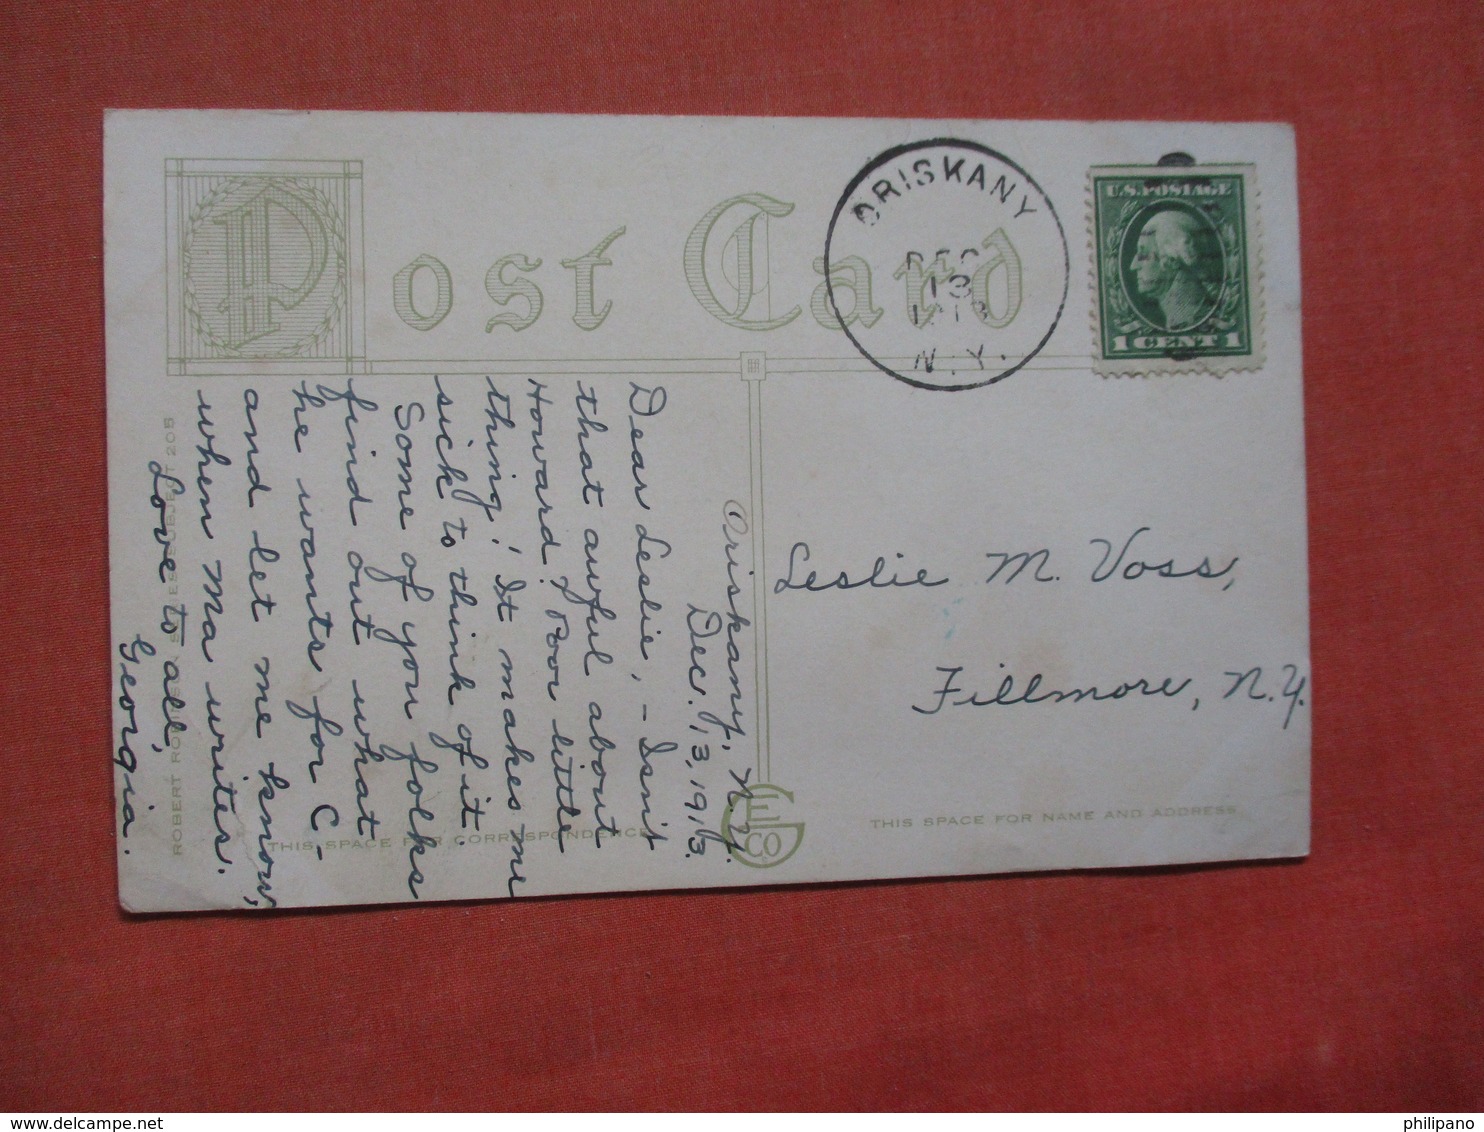 Post Card
ORISKANY
DEC
13
1913
N.Y.
U.S. POSTAGE
1 CENT 1
Oriskany, N.Y.
Dec. 13, 1913.
Dear Leslie, - Isn't
that awful about
Howard? Poor little
thing! It makes me
sick to think of it.
Some of you folks
find out what
he wants for C-
and let me know,
when Ma writes.
Love to all,
Georgia.
Leslie M. Voss,
Fillmore, N.Y.
THIS SPACE FOR CORRESPONDENCE
THIS SPACE FOR NAME AND ADDRESS
CO
delcampe.net
philipano